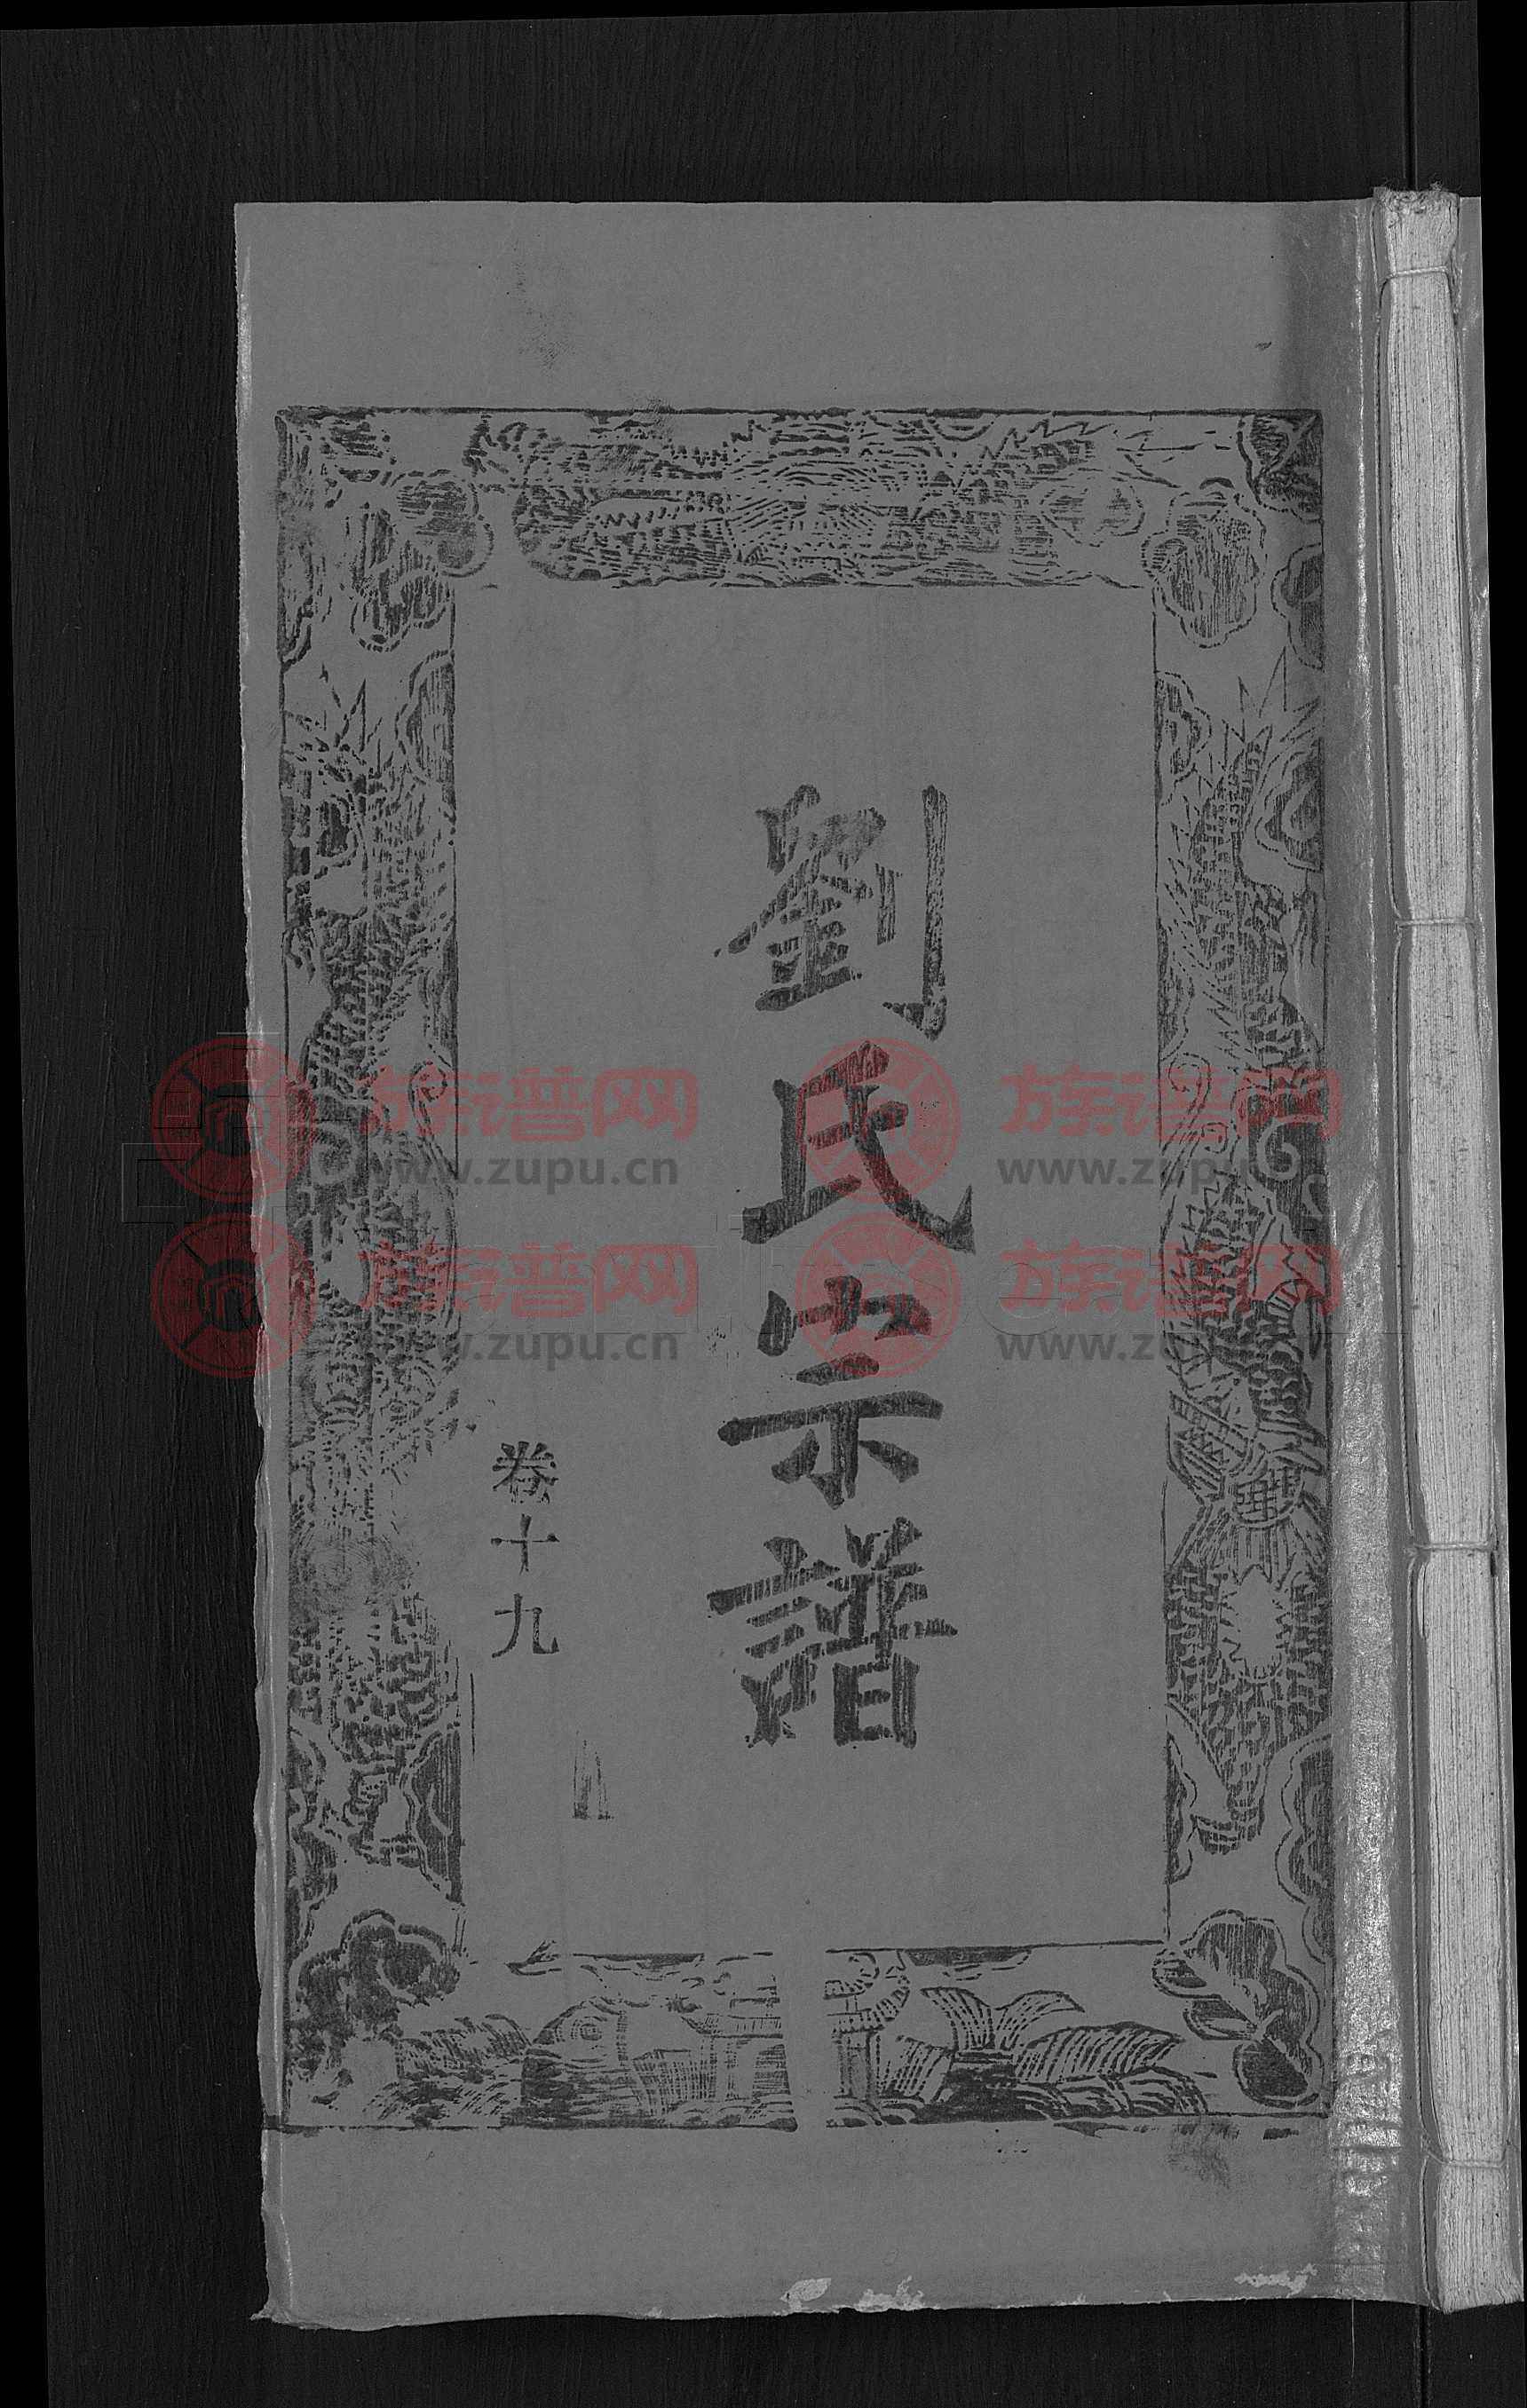 劉氏宗譜
卷十九
族谱网
www.zupu.cn
族谱网
www.zupu.cn
族谱网
www.zupu.cn
族谱网
www.zupu.cn